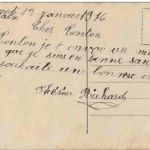 1er janvier 1916
Cher Tonton
Tonton je t'envoi un
que je suis en bonne san
souhaite une bonne
Thérèse Richard